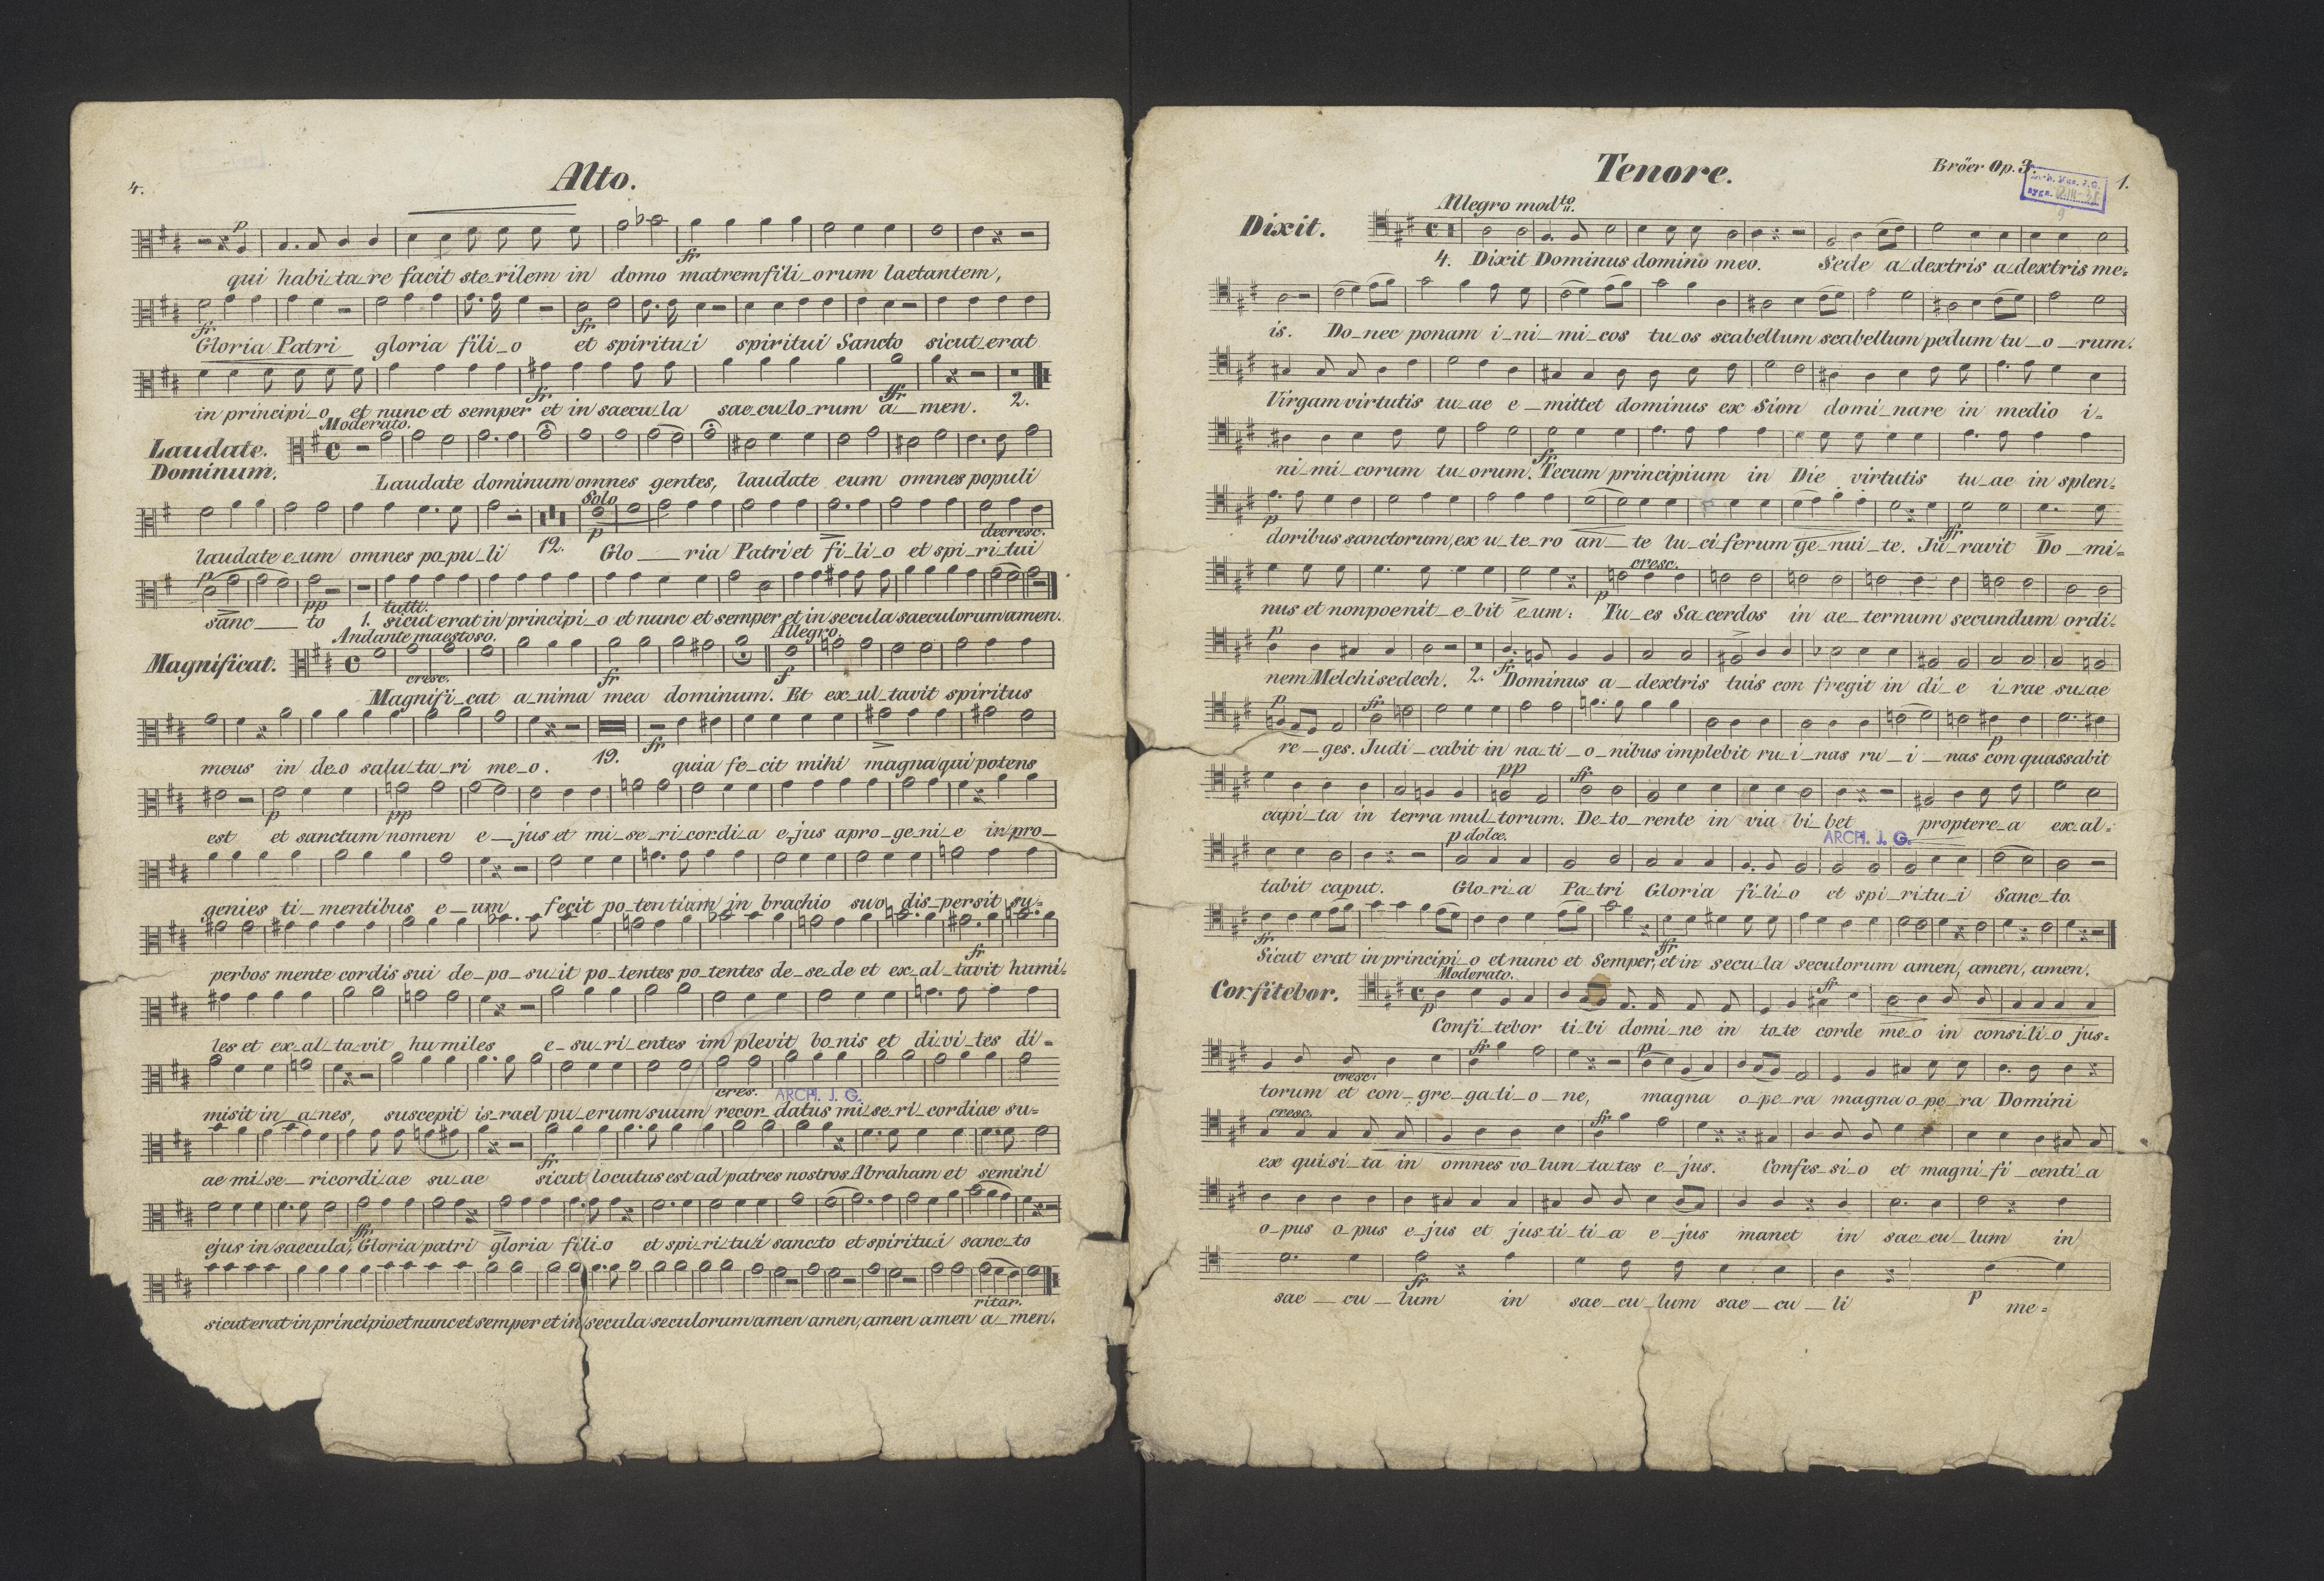 4.
Alto.
p
fr
qui habi_ta_re facit ste_rilem in domo matrem fili_orum laetantem,
fr
fr
Gloria Patri gloria fili_o et spiritu_i spiritui Sancto sicut_erat
fr
ffr
in principi_o et nunc et semper et in saecu_la sae_cu_lo_rum a_men. 2.
Moderato.
Laudate.
Dominum.
Laudate dominum omnes gentes, laudate eum omnes populi
Solo
p
decresc.
laudate e_um omnes po_pu_li 12. Glo_ria Patri et fi_li_o et spi_ri_tui
p
pp
tutti.
sanc_to 1. sicut erat in principi_o et nunc et semper et in secula saeculorum amen.
Andante maestoso.
Allegro.
Magnificat.
cresc.
fr
f
Magnifi_cat a_nima mea dominum. Et ex_ul_tavit spiritus
fr
meus in de_o salu_ta_ri me_o. 19. quia fe_cit mihi magna qui potens
p
pp
est et sanctum nomen e_jus et mi_se_ri_cor_di_a e_jus a pro_ge_ni_e in pro_
genies ti_mentibus e_um fecit po_tentiam in brachio suo dis_persit su=
fr
perbos mente cordis sui de_po_su_it po_tentes po_tentes de_se_de et ex_al_tavit humi=
les et ex_al_ta_vit humiles e_su_ri_entes im plevit bo_nis et di_vi_tes di=
cres.
ARCH. J. G.
misit in_a_nes, suscepit is_rael pu_erum suum recor_datus mi_se_ri_cordiae su=
fr
ae mi_se_ricordi_ae su_ae sicut locutus est ad patres nostros Abraham et semini
ffr
ejus in saecula, Gloria patri gloria fili_o et spi_ri_tu_i sanc_to et spiritu_i sanc_to
ritar.
sicut erat in principio et nunc et semper et in secula seculorum amen amen, amen amen a_men.
Tenore.
Bröer Op. 3.
1.
Allegro mod.to
Dixit.
4. Dixit Dominus domino meo. Sede a_dextris a_dextris me=
is. Do_nec ponam i_ni_mi_cos tu_os scabellum scabellum pedum tu_o_rum.
Virgam virtutis tu_ae e_mittet dominus ex Sion domi_nare in medio i=
fr
ni_mi_corum tu_orum. Tecum principium in Die virtutis tu_ae in splen=
p
ffr
doribus sanctorum, ex u_te_ro an_te lu_ci_ferum ge_nui_te. Ju_ravit Do_mi=
cresc.
p
nus et non poenit_e_bit e_um: Tu_es Sa_cerdos in ae_ternum secundum ordi=
p
fr
nem Melchisedech. 2. Dominus a_dextris tuis con fregit in di_e i_rae su_ae
p
fr
p
re_ges. Judi_cabit in na_ti_o_nibus implebit ru_i_nas ru_i_nas con quassabit
pp
fr
capi_ta in terra mul_torum. De_to_rente in via bi_bet propter_e_a ex_al=
p dolce.
ARCH. J. G.
tabit caput. Glo_ri_a Pa_tri Gloria fi_li_o et spi_ri_tu_i Sanc_to.
fr
ffr
Sicut erat in principi_o et nunc et Semper, et in secu_la seculorum amen, amen, amen.
Moderato.
Corfitebor.
p
fr
Confi_tebor ti_bi domi_ne in to_te corde me_o in consi_li_o jus=
cresc.
fr
p
torum et con_gre_ga_ti_o_ne, magna o_pe_ra magna o_pe_ra Domini
cresc.
fr
ex quisi_ta in omnes vo_lun_ta_tes e_jus. Confes_si_o et magni_fi_centi_a
o_pus o_pus e_jus et jus_ti_ti_a e_jus manet in sae_cu_lum in
fr
p
sae_cu_lum in sae_cu_lum sae_cu_li me=